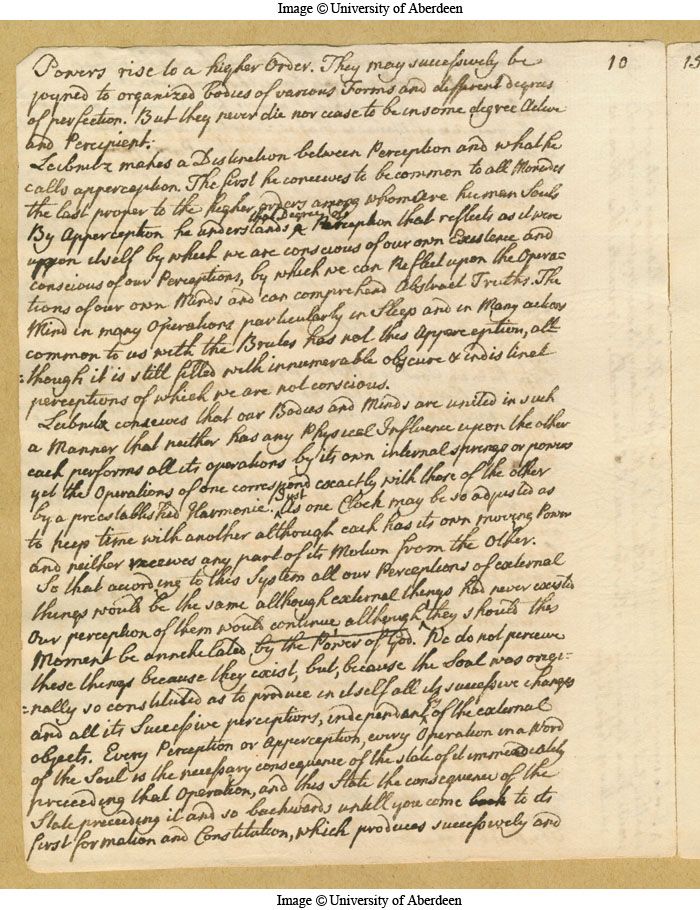 Image © University of Aberdeen
10
15
Powers rise to a higher Order. They may successively be
joyned to organized bodies of various Forms and different degrees
of perfection. But they never die nor cease to be in some degree Active
and Percipient.
Leibnitz makes a Distinction between Perception and what he
calls apperception. The first he conceives to be common to all Monades
the last proper to the higher orders among whom are human Souls
By Apperception he understands that Degree of Perception that reflects as it were
upon itself by which we are conscious of our own Existence and
conscious of our Perceptions, by which we can Reflect upon the Opera-
tions of our own Minds and can comprehend Abstract Truths. The
Mind in many Operations particularly in Sleep and in Many actions
common to us with the Brutes has not this Apperception, alt
=though it is still filled with innumerable obscure & indistinct
perceptions of which we are not conscious.
Leibnitz conceives that our Bodies and Minds are united in such
a Manner that neither has any Physical Influence upon the other
each performs all its operations by its own internal springs or powers
yet the Operations of one correspond exactly with those of the other
by a preestablished Harmonie. Just As one Clock may be so adjusted as
to keep time with another although each has its own moving Power
and neither receives any part of its Motion from the Other.
So that acording to this System all our Perceptions of external
things would be the same although external things had never existed
Our perception of them would continue although they should this
Moment be annehelated by the Power of God. We do not perceive
these things because they exist, but, because the Soul was origi=
=nally so constituted as to produce in itself all its successive changes
and all its Successive perceptions, independantly of the external
objects. Every Perception or Apperception, every Operation in a Word
of the Soul is the necessary consequence of the state of it immediately
preceeding that Operation, and this State the consequence of the
State preceeding it and so backwards untill you come to its
first formation and Constitution, which produces successively and
Image © University of Aberdeen